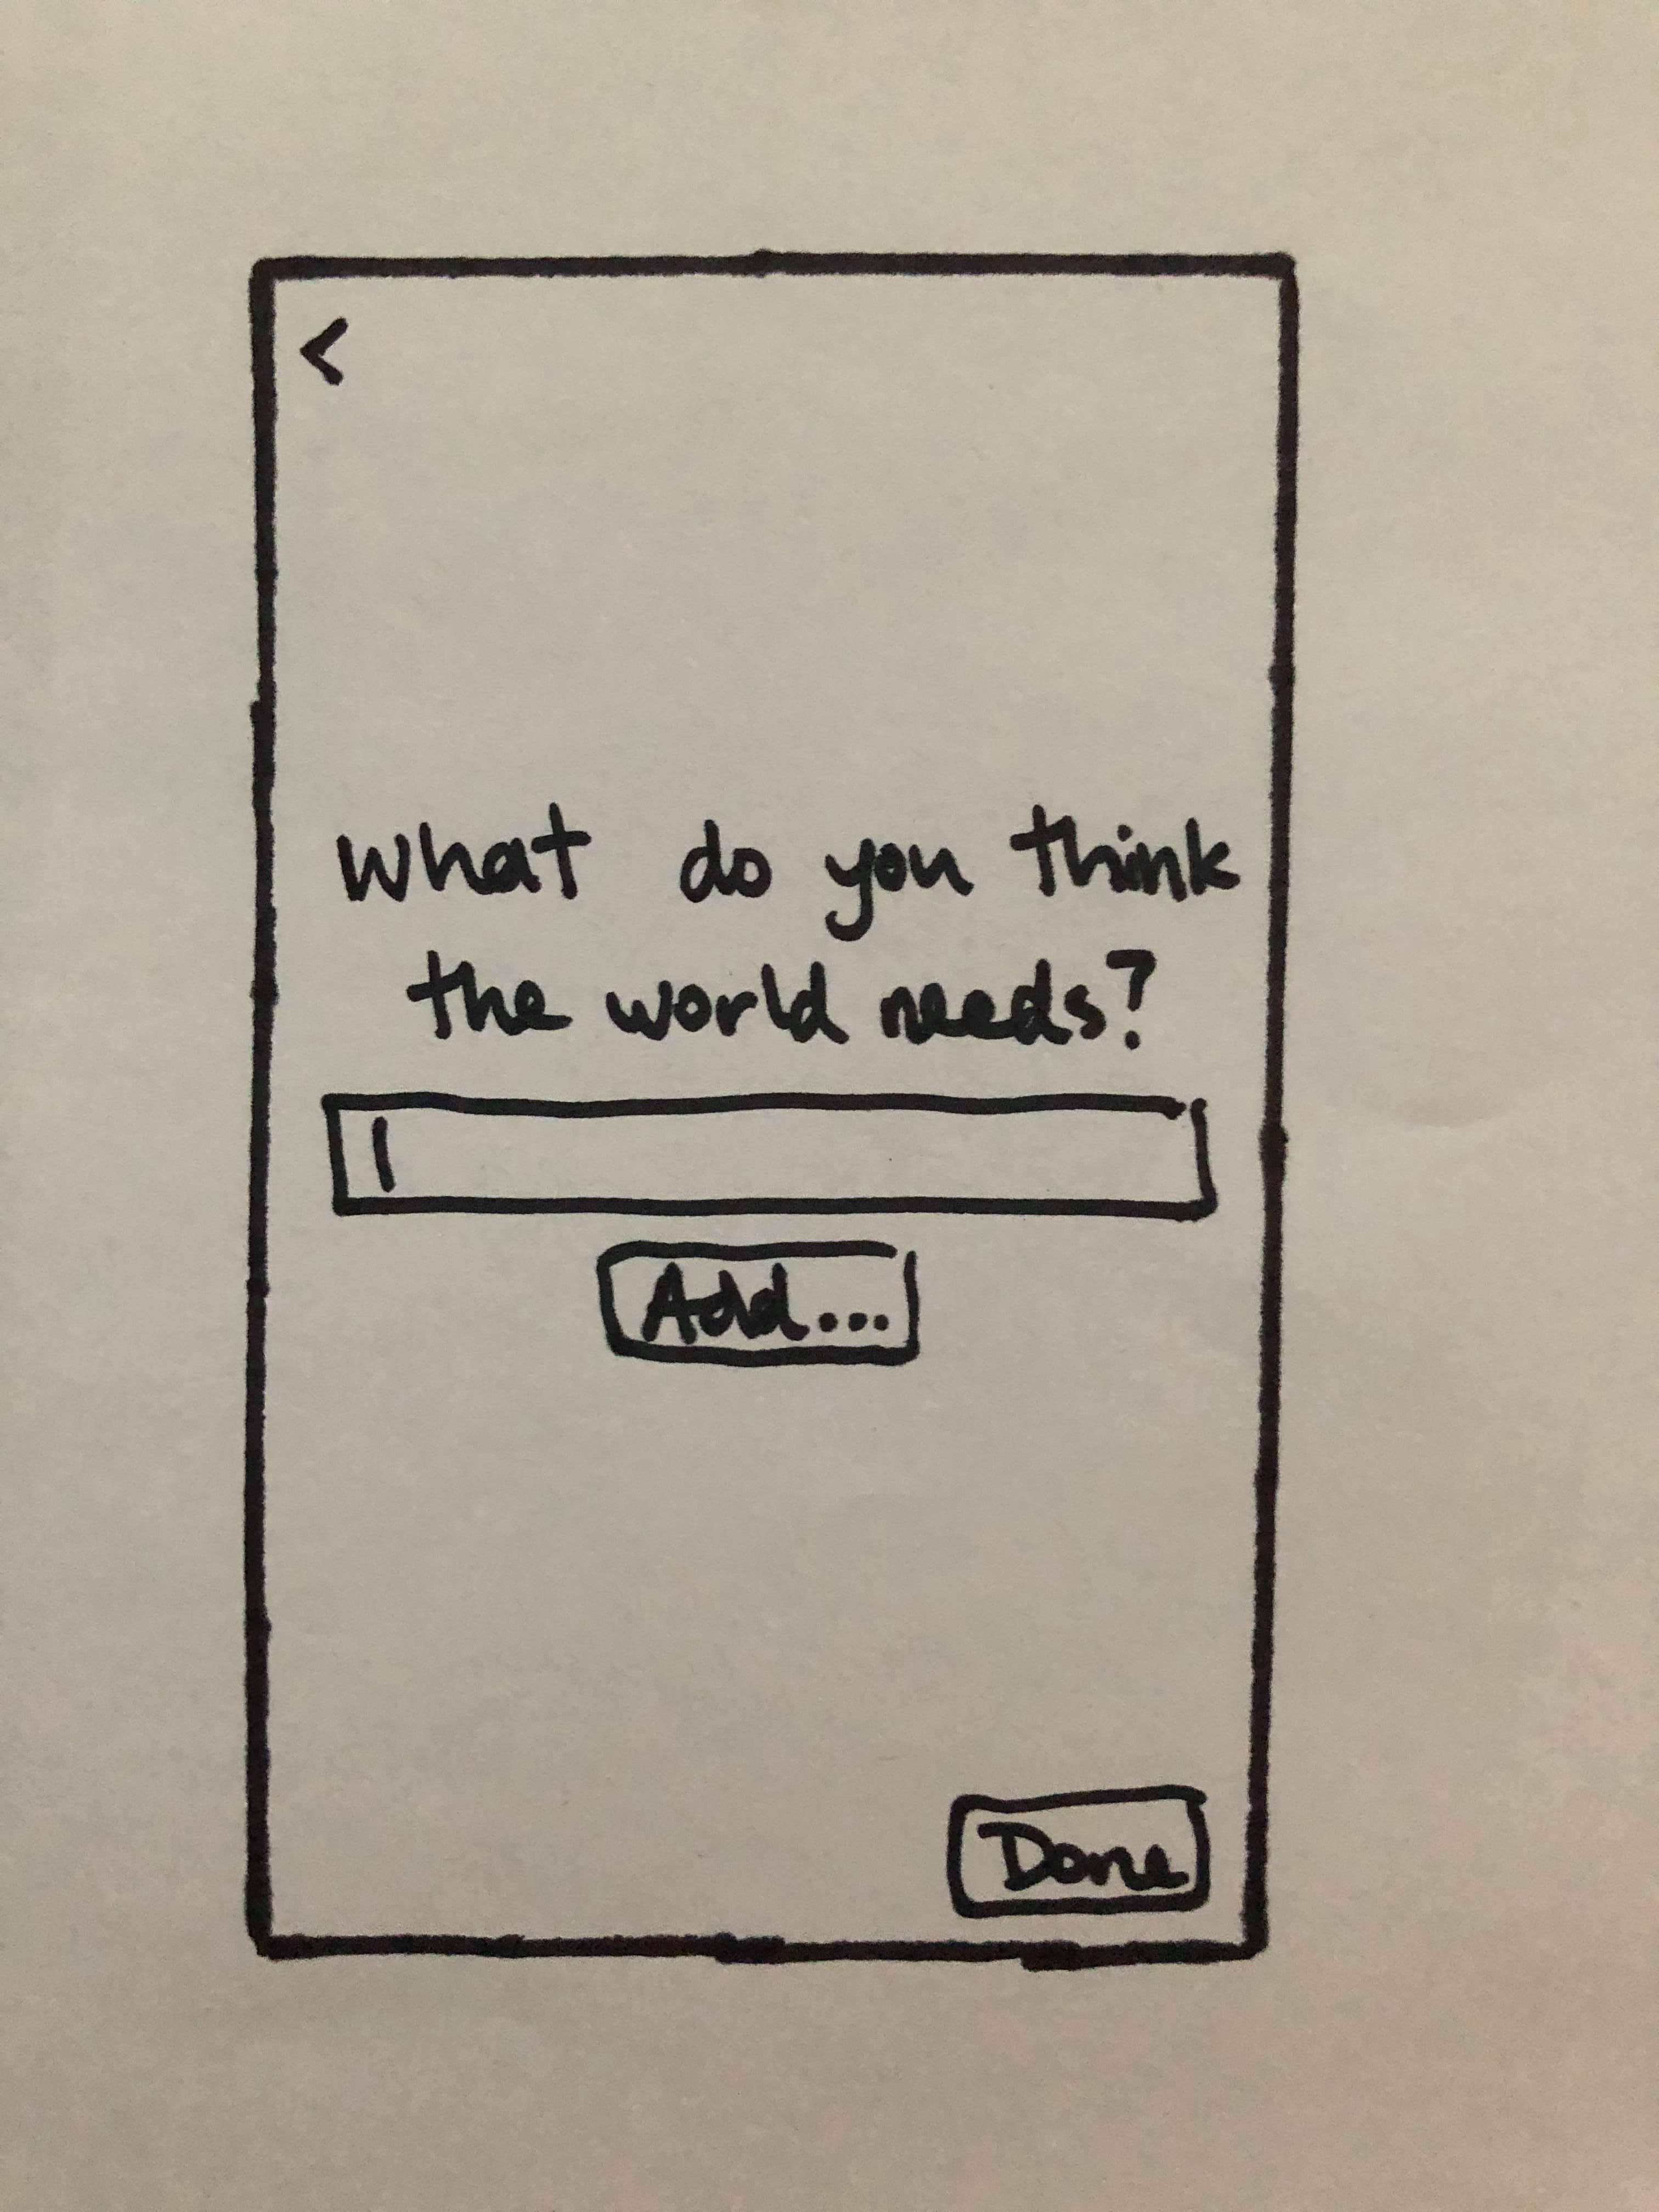 <
What do you think
the world needs?
Add...
Done